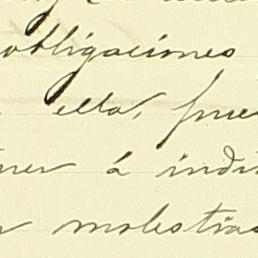 obligaciones
ella, pue
ner á indi
molestias